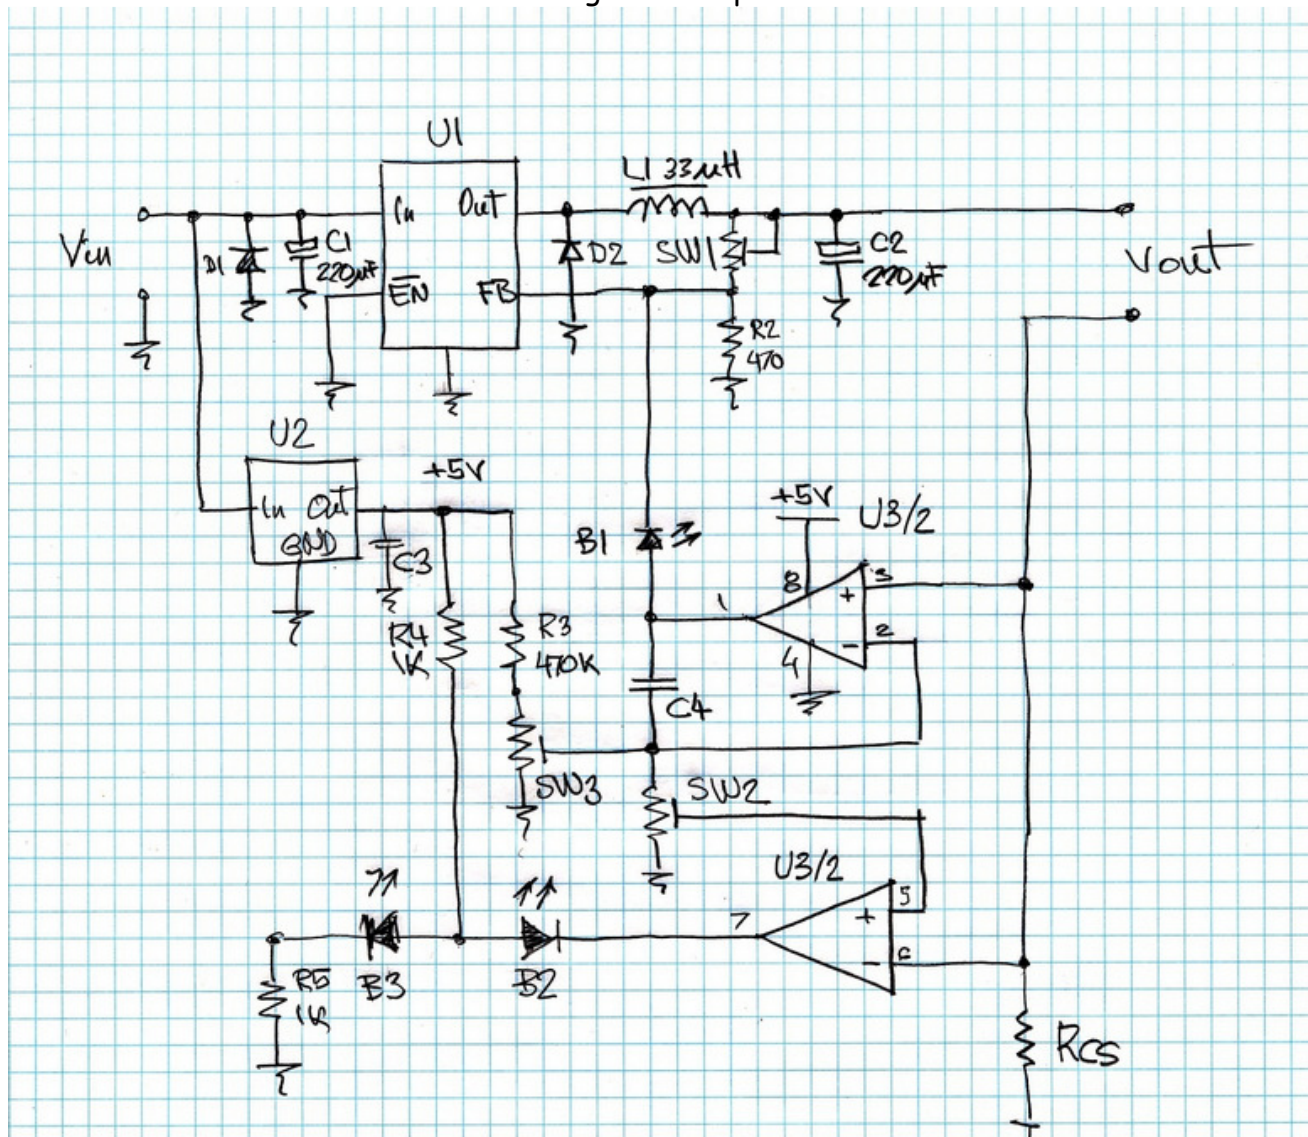 U1
L1 33µH
In Out
Vin
D1
C1
220µF
EN FB
D2
SW1
C2
220µF
Vout
R2
470
U2
In Out
GND
+5V
C3
R4
1K
R3
470K
B1
+5V
U3/2
8
3
+
1
2
-
4
C4
SW3
SW2
U3/2
5
+
7
6
-
B3
B2
R5
1K
Rcs